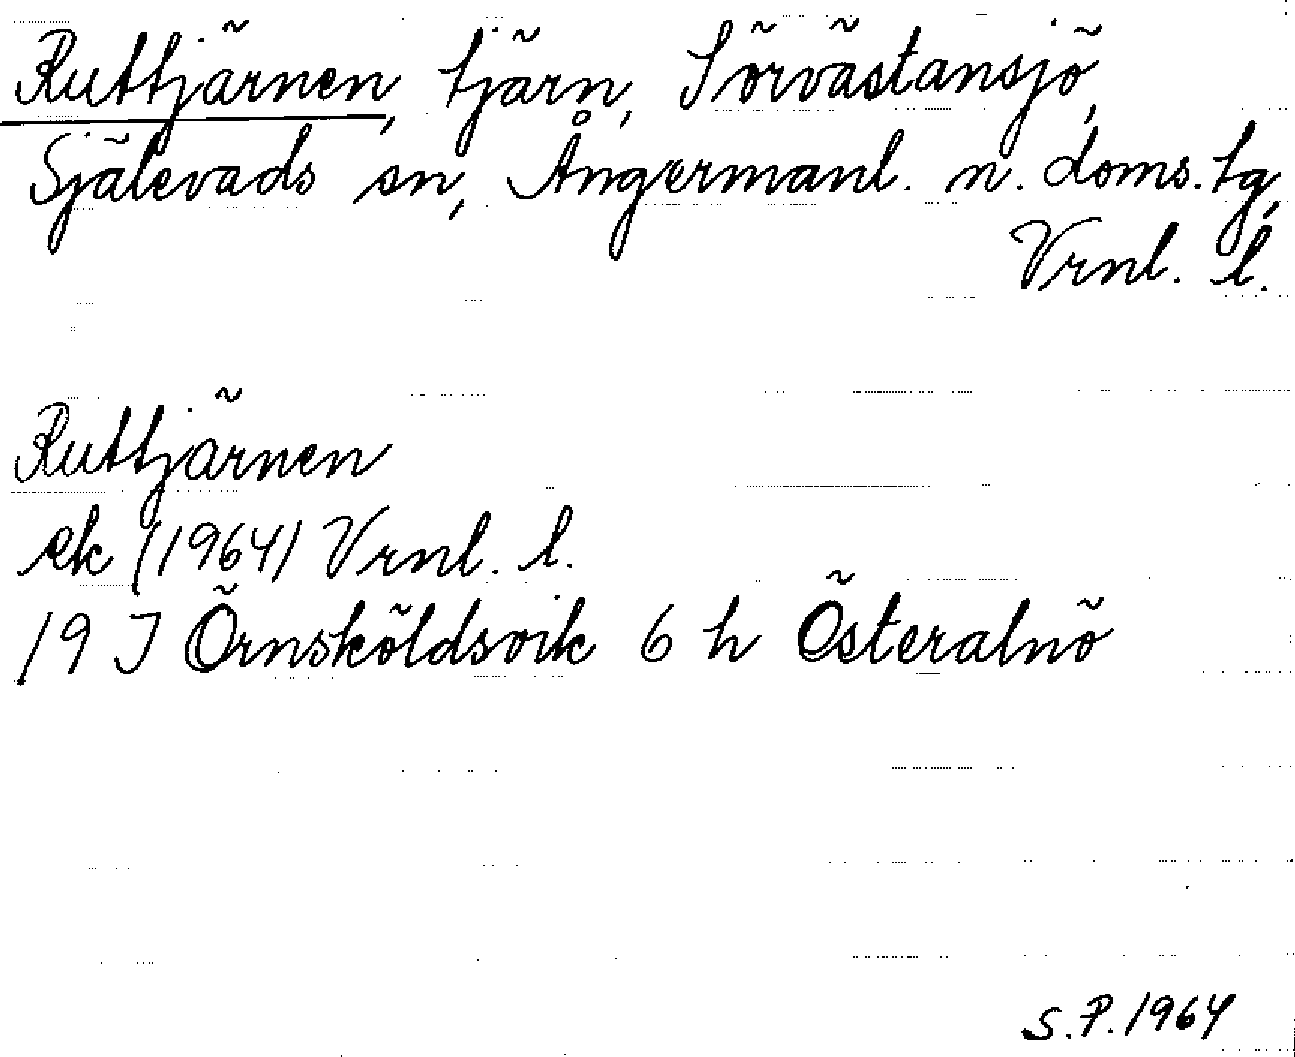 Ruttjärnen, tjärn, Sörvästansjö,
Själevads sn, Ångermanl. n. doms. tg,
Vrnl. l.
Ruttjärnen
ek (1964) Vrnl. l.
19 J Örnsköldsvik 6 h Österalnö
S.P. 1964